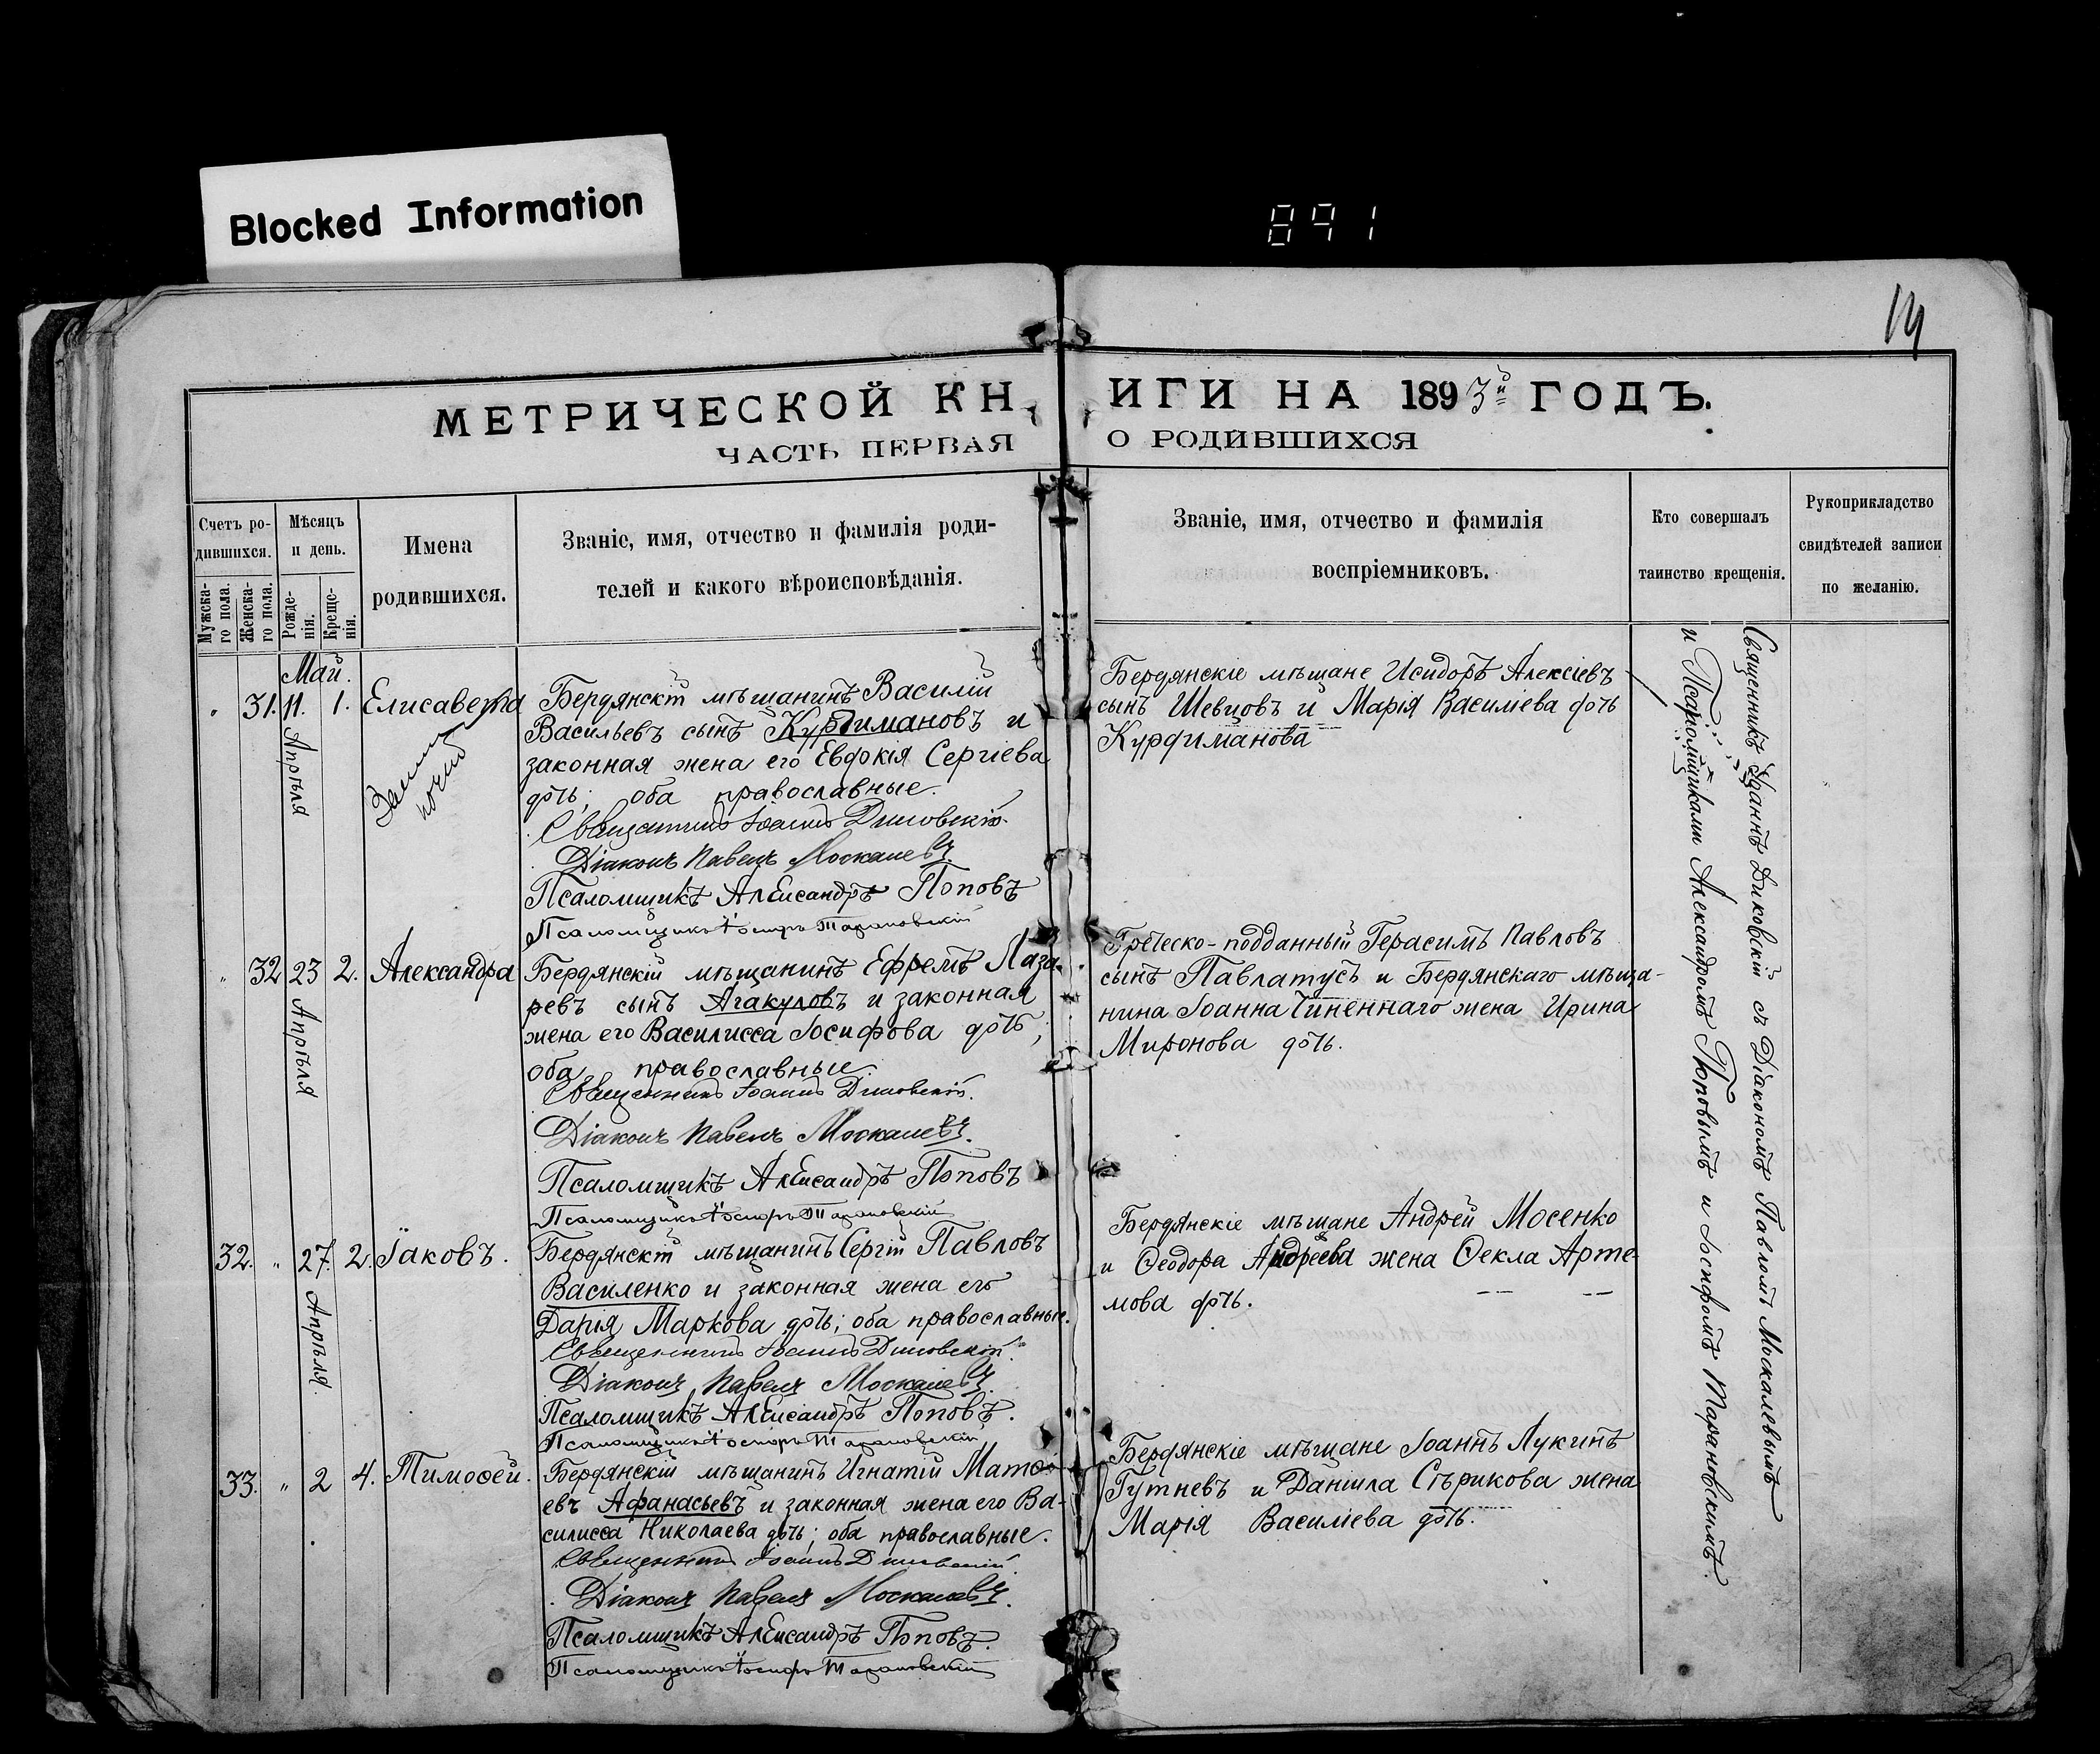 Blocked Information
891
14
МЕТРИЧЕСКОЙ КН
ИГИ НА 1893й ГОДЪ.
ЧАСТЬ ПЕРВАЯ
О РОДИВШИХСЯ
Счетъ ро-
дившихся.
Мужска-
го пола.
Женска-
го пола.
Мѣсяцъ
и день.
Рожде-
нія.
Креще-
нія.
Имена
родившихся.
Званіе, имя, отчество и фамилія роди-
телей и какого вѣроисповѣданія.
Званіе, имя, отчество и фамилія
воспріемниковъ.
Кто совершалъ
таинство крещенія.
Рукоприкладство
свидѣтелей записи
по желанію.
Май.
„ 31. 11. 1. Елисавета
Апрѣля
Бердянскій мѣщанинъ Василій
Васильевъ сынъ Курдимановъ и
законная жена его Евдокія Сергіева
дочь; оба православные.
Священникъ Іоаннъ Диковскій
Діаконъ Павелъ Москалевъ.
Псаломщикъ Александръ Поповъ
Псаломщикъ Іосифъ Тарановскій
Бердянскіе мѣщане Исидоръ Алексіевъ
сынъ Шевцовъ и Марія Василіева дочь
Курдиманова
„ 32 23 2. Александра
Апрѣля
Бердянскій мѣщанинъ Ефремъ Лаза-
ревъ сынъ Агакуловъ и законная
жена его Василисса Іосифова дочь;
оба православные.
Священникъ Іоаннъ Диковскій.
Діаконъ Павелъ Москалевъ.
Псаломщикъ Александръ Поповъ
Псаломщикъ Іосифъ Тарановскій
Греческо-подданный Герасимъ Павловъ
сынъ Павлатусъ и Бердянскаго мѣща-
нина Іоанна Чиненнаго жена Ирина
Миронова дочь.
32. „ 27. 2. Іаковъ.
Апрѣля.
Бердянскій мѣщанинъ Сергій Павловъ
Василенко и законная жена его
Дарія Маркова дочь; оба православные.
Священникъ Іоаннъ Диковскій.
Діаконъ Павелъ Москалевъ.
Псаломщикъ Александръ Поповъ.
Псаломщикъ Іосифъ Тарановскій
Бердянскіе мѣщане Андрей Мосенко
и Ѳеодора Андреева жена Ѳекла Арте-
мова дочь.
33. „ 2 4. Тимоѳей.
Бердянскій мѣщанинъ Игнатій Матѳ-
евъ Афанасьевъ и законная жена его Ва-
силисса Николаева дочь; оба православные.
Священникъ Іоаннъ Диковскій.
Діаконъ Павелъ Москалевъ.
Псаломщикъ Александръ Поповъ.
Псаломщикъ Іосифъ Тарановскій
Бердянскіе мѣщане Іоаннъ Лукинъ
Гутневъ и Даніила Стѣрикова жена
Марія Василіева дочь.
Священникъ Іоаннъ Диковскій съ Діакономъ Павломъ Москалевымъ
и Псаломщиками Александромъ Поповымъ и Іосифомъ Тарановскимъ.